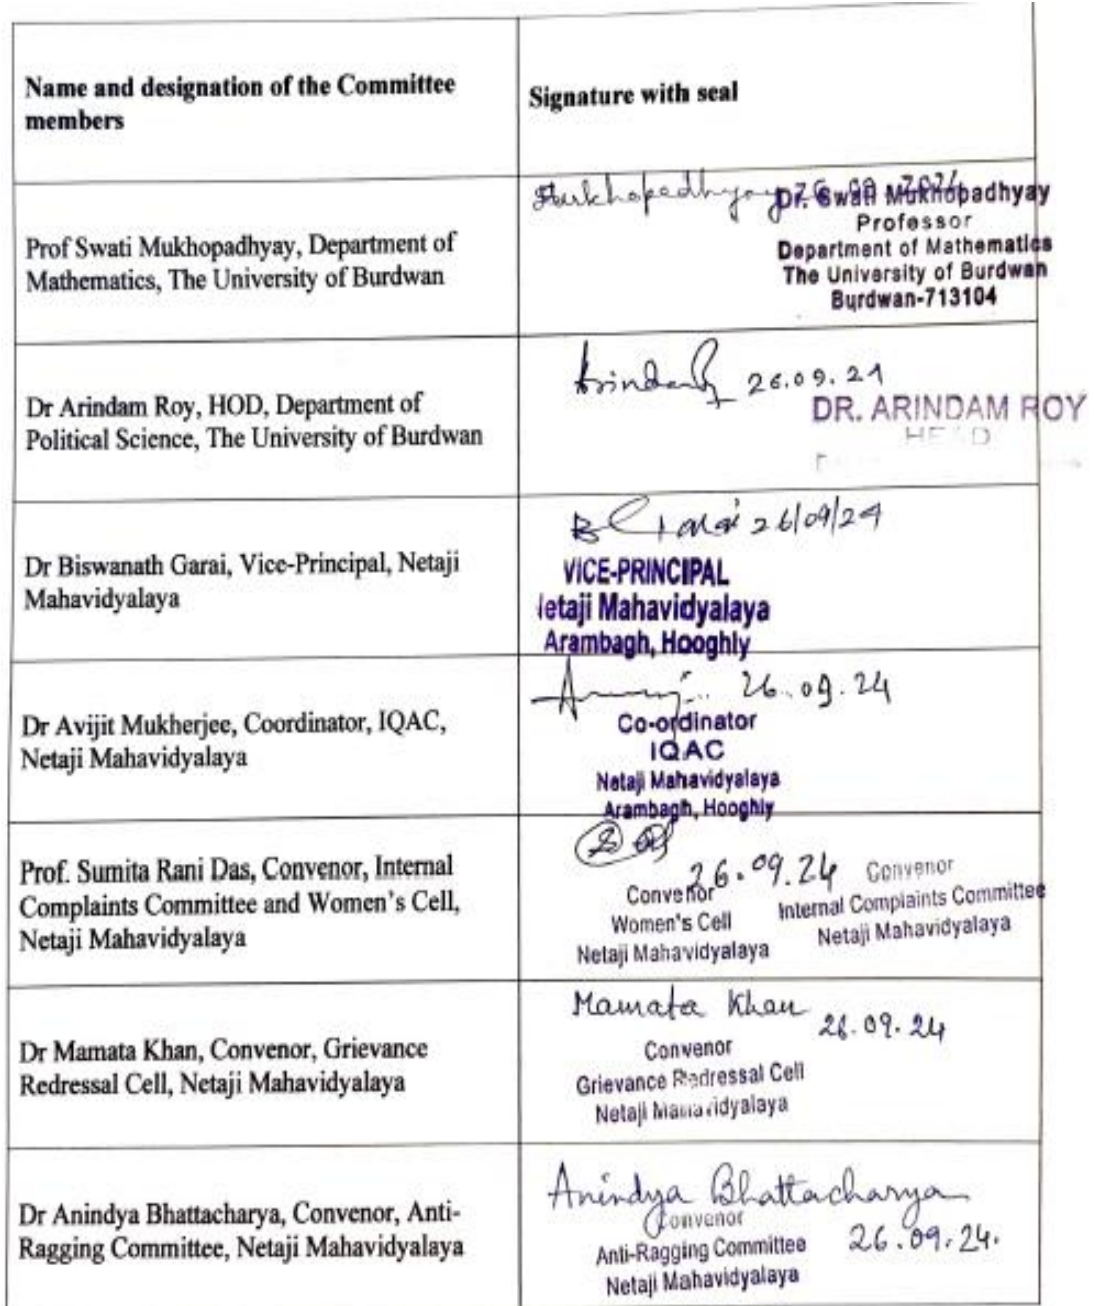 Name and designation of the Committee
members
Signature with seal
Prof Swati Mukhopadhyay, Department of
Mathematics, The University of Burdwan
SMukhopadhyay 26.09.2024
Dr. Swati Mukhopadhyay
Professor
Department of Mathematics
The University of Burdwan
Burdwan-713104
Dr Arindam Roy, HOD, Department of
Political Science, The University of Burdwan
Arindam 26.09.24
DR. ARINDAM ROY
HEAD
Dr Biswanath Garai, Vice-Principal, Netaji
Mahavidyalaya
B Garai 26/09/24
VICE-PRINCIPAL
letaji Mahavidyalaya
Arambagh, Hooghly
Dr Avijit Mukherjee, Coordinator, IQAC,
Netaji Mahavidyalaya
26.09.24
Co-ordinator
IQAC
Netaji Mahavidyalaya
Arambagh, Hooghly
Prof. Sumita Rani Das, Convenor, Internal
Complaints Committee and Women's Cell,
Netaji Mahavidyalaya
26.09.24
Convenor
Women's Cell
Netaji Mahavidyalaya
Convenor
Internal Complaints Committee
Netaji Mahavidyalaya
Dr Mamata Khan, Convenor, Grievance
Redressal Cell, Netaji Mahavidyalaya
Mamata Khan
26.09.24
Convenor
Grievance Redressal Cell
Netaji Mahavidyalaya
Dr Anindya Bhattacharya, Convenor, Anti-
Ragging Committee, Netaji Mahavidyalaya
Anindya Bhattacharya
26.09.24.
Convenor
Anti-Ragging Committee
Netaji Mahavidyalaya